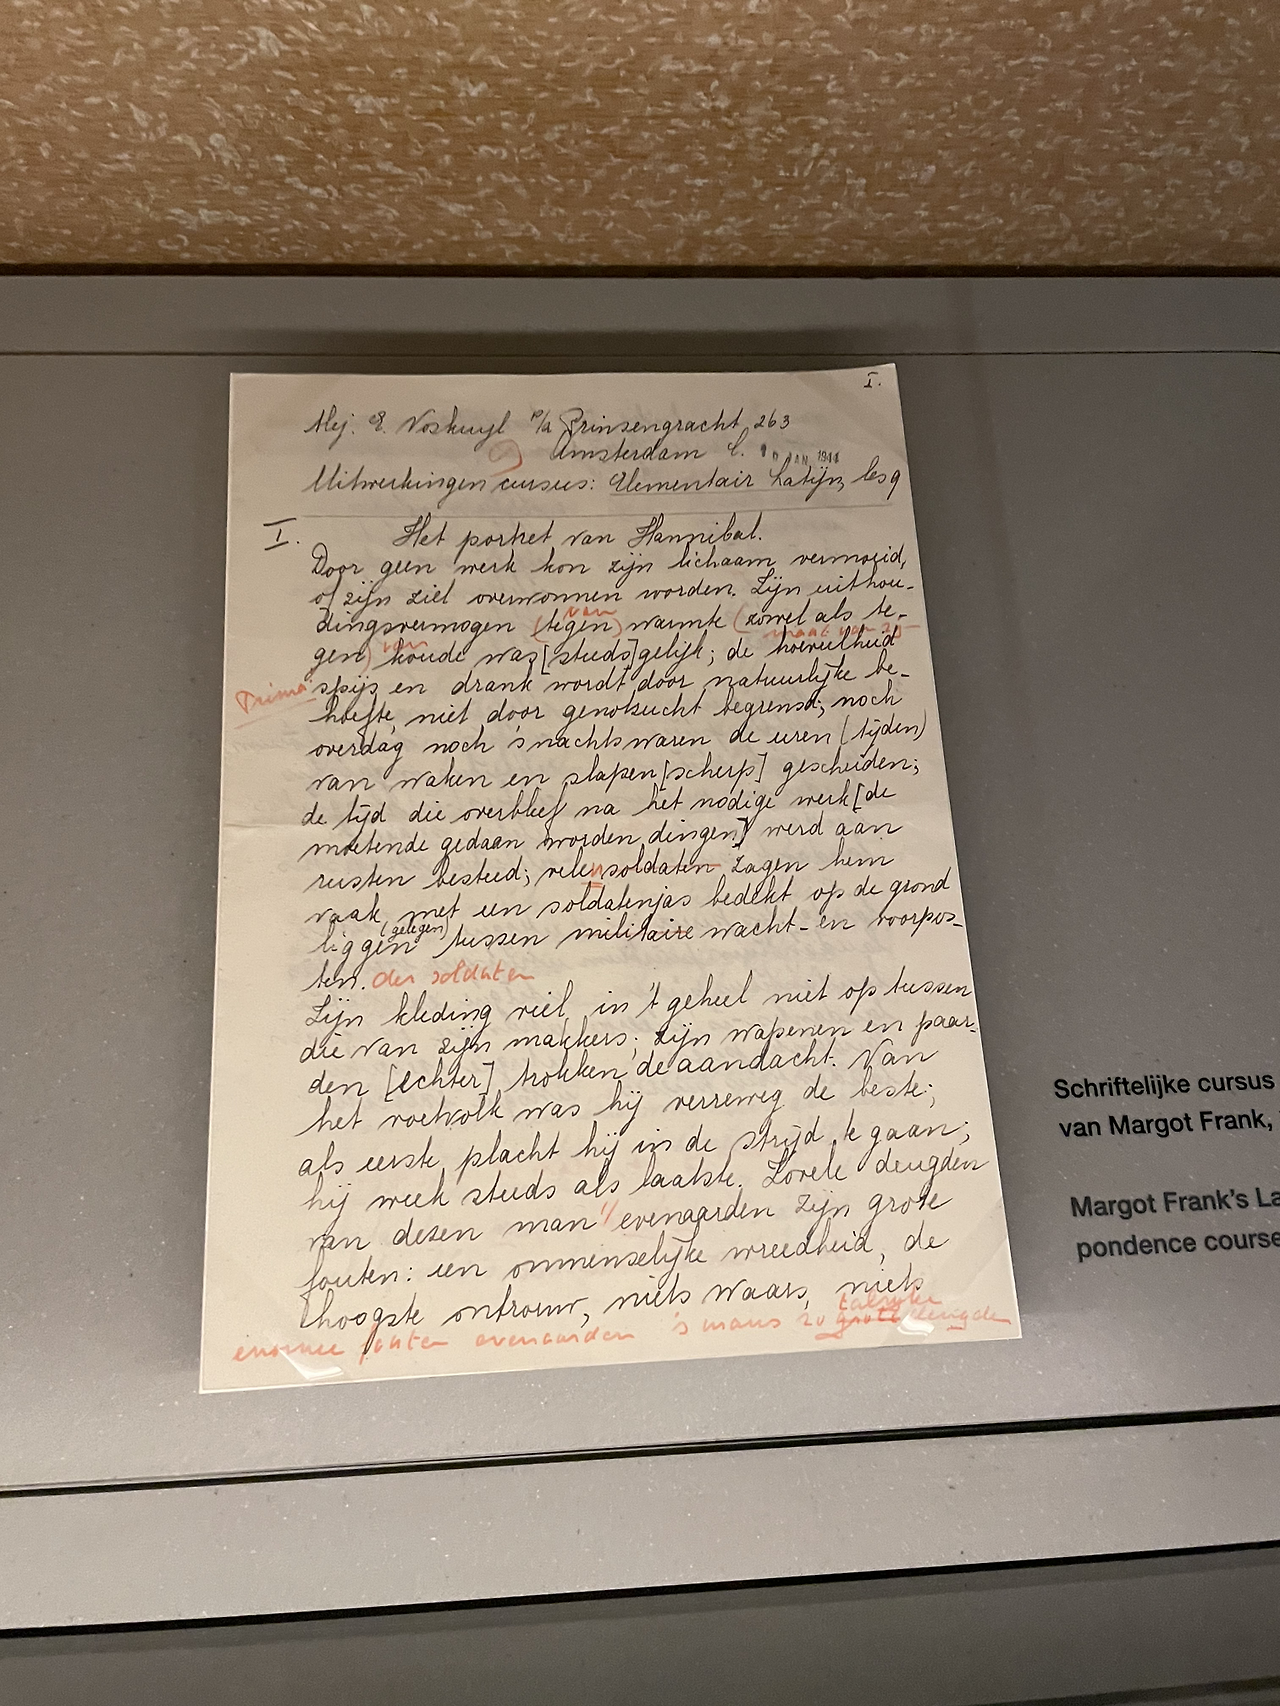 I.
Mej. E. Voskuyl p/a Prinsengracht 263
Amsterdam C. JAN. 1944
Uitwerkingen cursus: Elementair Latijn, les 9
I. Het portret van Hannibal.
Door geen werk kon zijn lichaam vermoeid,
of zijn ziel overwonnen worden. Zijn uithou-
van
dingsvermogen (tegen) warmte (zowel als te-
van maat van zijn
gen) koude was [steeds] gelijk; de hoeveelheid
Prima spijs en drank wordt door natuurlijke be-
hoefte, niet door genotzucht begrensd; noch
overdag noch 's nachts waren de uren (tijden)
van waken en slapen [scherp] gescheiden;
de tijd die overbleef na het nodige werk [de
moetende gedaan worden dingen] werd aan
rusten besteed; velen soldaten zagen hem
vaak, met een soldatenjas bedekt op de grond
(gelegen)
liggen tussen militaire wacht- en voorpos-
ten. der soldaten
Zijn kleding viel in 't geheel niet op tussen
die van zijn makkers; zijn wapenen en paar-
den [echter] trokken de aandacht. Van
het voetvolk was hij verreweg de beste;
als eerste placht hij in de strijd te gaan;
hij week steeds als laatste. Zovele deugden
van dezen man evenaarden zijn grote
fouten: een onmenselijke wreedheid, de
hoogste ontrouw, niets waars, niets
talrijke
enorme fouten evenaarden 's mans zo grote deugde
Schriftelijke cursus
van Margot Frank,
Margot Frank's La
pondence course